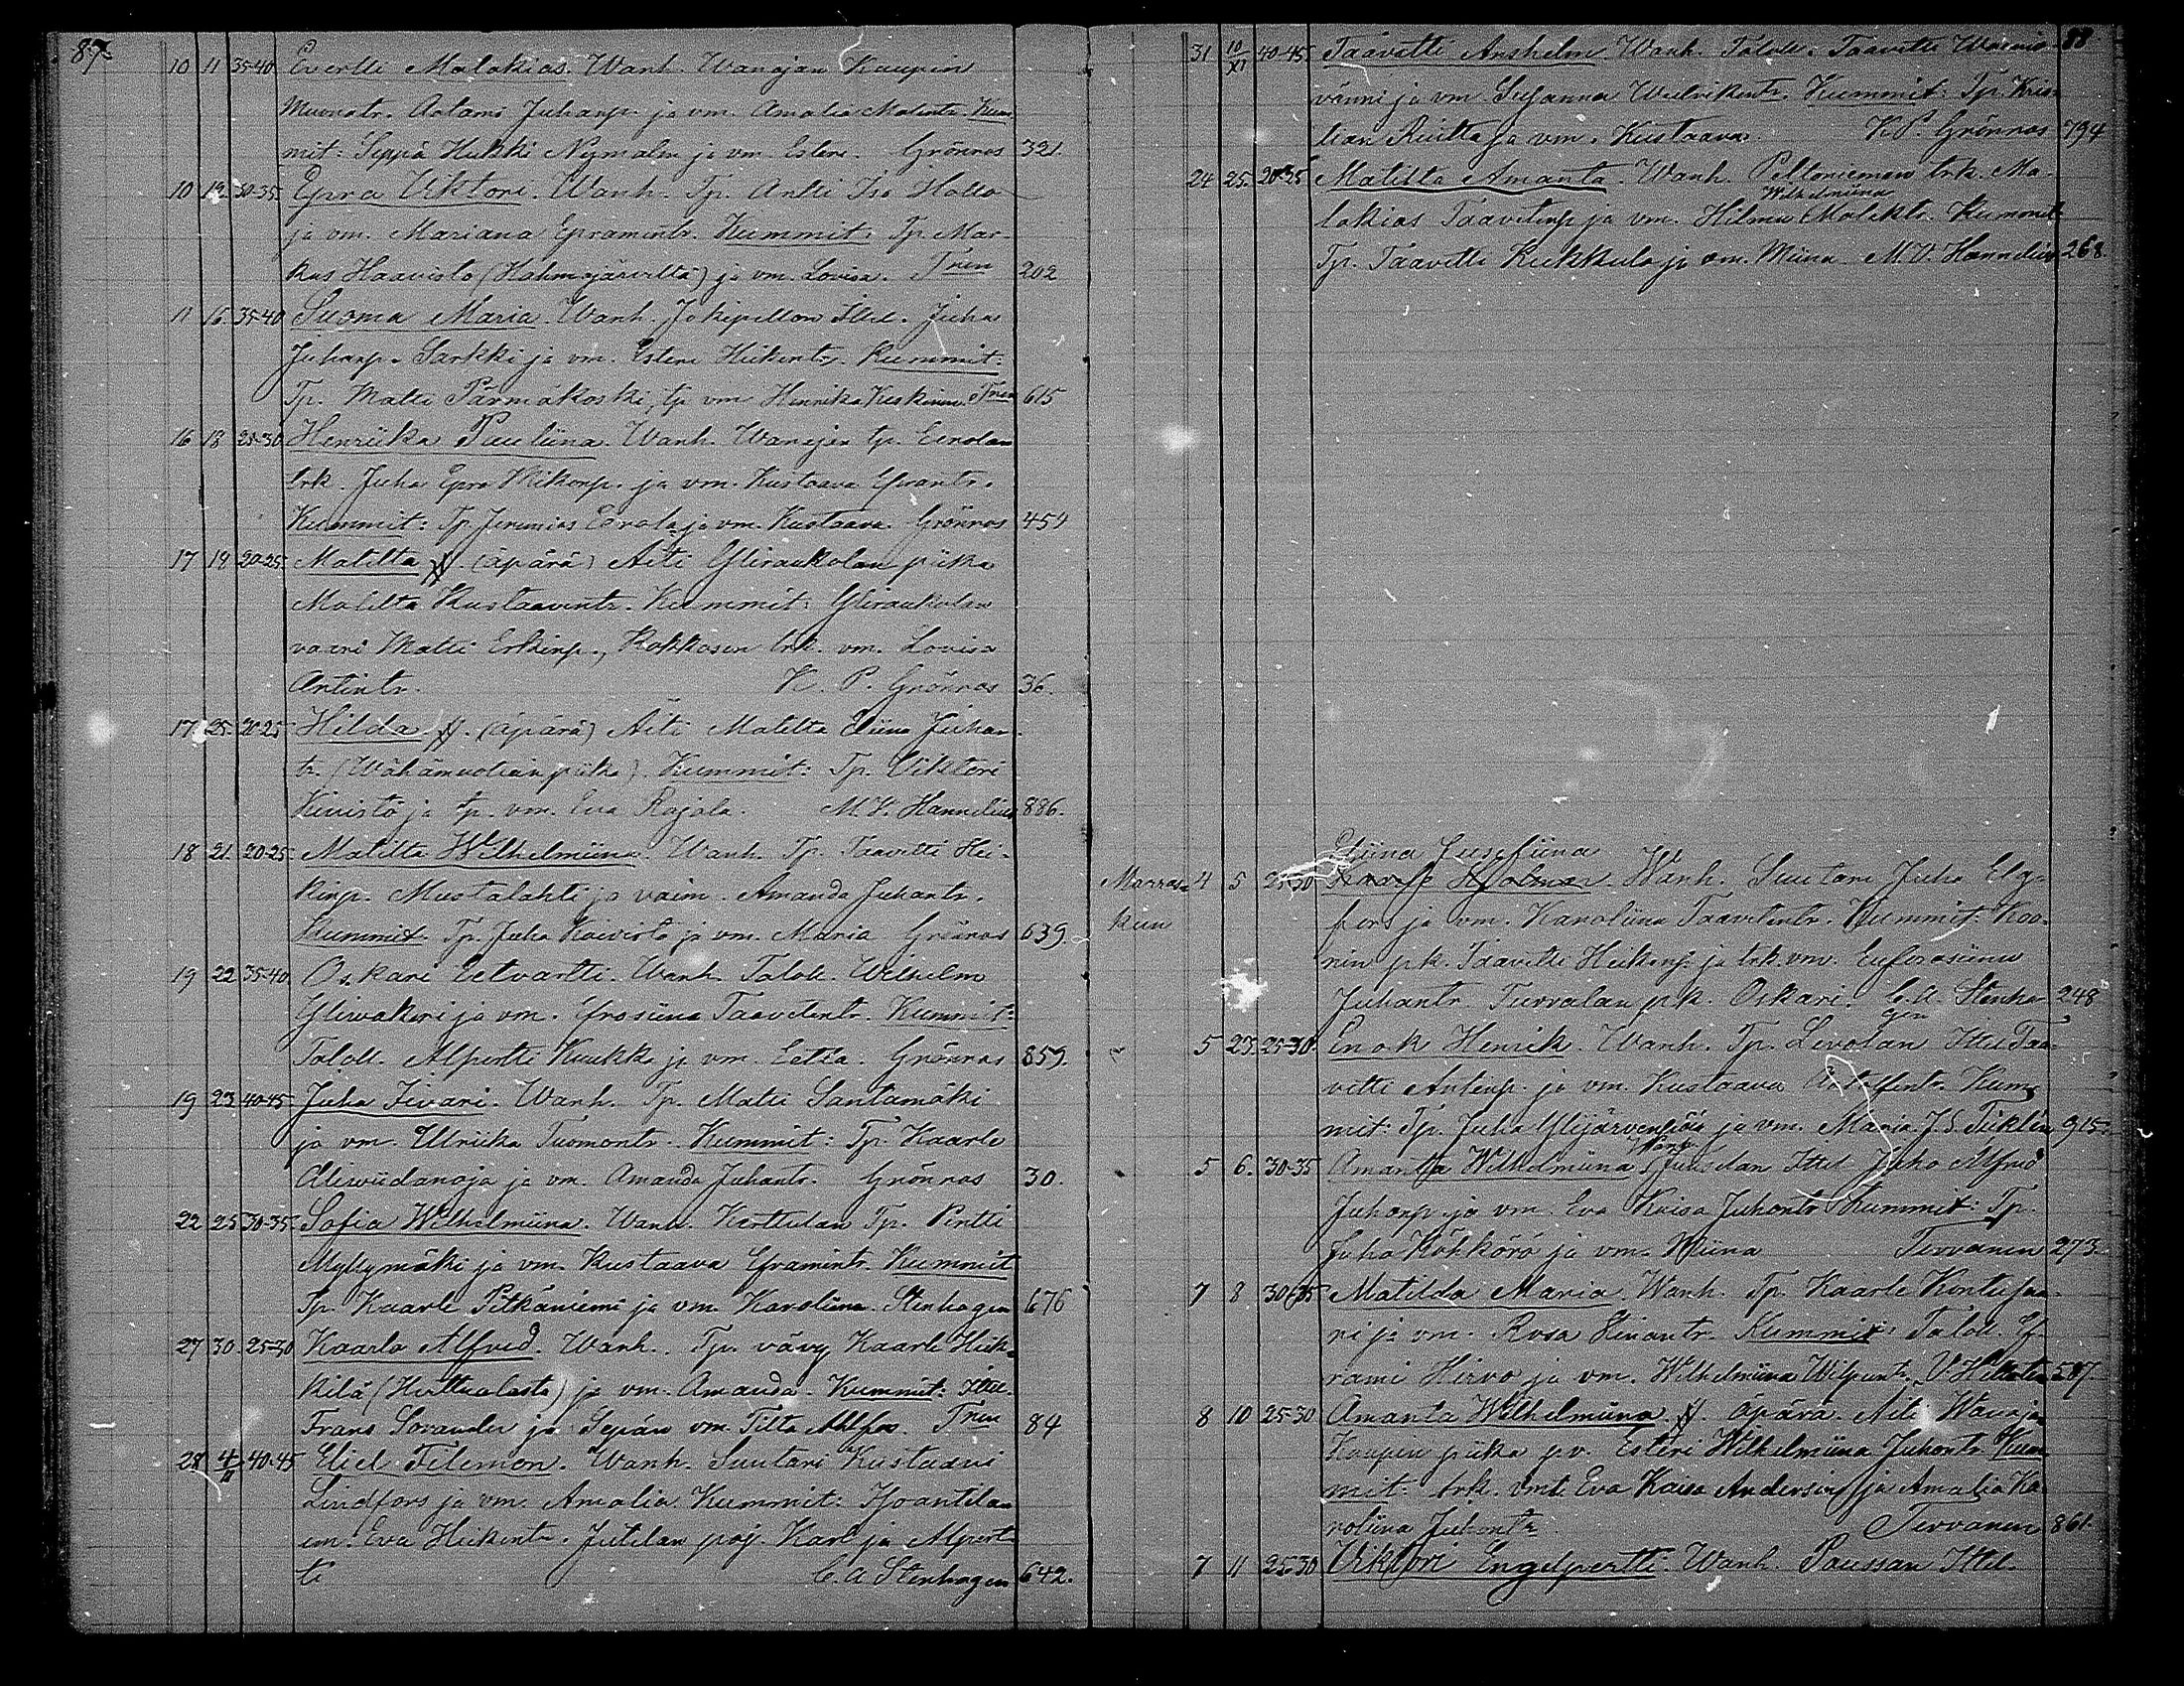 87
10 11 35-40 Evertti Malakias. Wanh. Wanajan Kaupin
Muonatr. Aatami Juhanp. ja vm. Amalia Matintr. Kum
mit: Seppä Heikki Nymalm ja vm. Esteri. Grönroos 321.
10 12 30-35 Epra Viktori. Wanh. Tp. Antti Iso Hollo
ja vm. Mariana Epramintr. Kummit: Tp. Mar-
kus Haavisto (Kahmajärveltä) ja vm. Lovisa. Tren 202
11 16 35-40 Suoma Maria. Wanh. Jokipellon Ittel. Juha
Juhanp. Sarkki ja vm. Esteri Heikintr. Kummit:
Tp. Matti Pärmäkoski, tp vm Henrika Keskinen. Tren 615
16 18 25-30 Henriika Pauliina. Wanh. Wanajan tp. Eerolan
trk. Juha Epra Mikonp. ja vm. Kustaava Efrantr.
Kummit: Tp. Jeremias Eerola ja vm. Kustaava. Grönroos 459
17 19 20-25 Matilta (äpärä) Äiti Yliraukolan piika
Matilta Kustaavintr. Kummit: Yliraukolan
vaari Matti Erkinp., Kokkosen trk. vm. Lovisa
Antintr. K. P. Grönroos 36.
17 25. 20-25 Hilda (äpärä) Äiti Matilta Eliina Juhan-
tr. (Wähämuolian piika). Kummit: Tp. Viktori
Kivistö ja tp. vm. Eva Rajala. M. V. Hannelius 886.
18 21. 20-25. Matilta Wilhelmiina. Wanh. Tp. Taavetti Hei-
kinp. Mustalahti ja vaim. Amanda Juhantr.
Kummit Tp. Juha Koivisto ja vm. Maria Grönroos 639
19 22 35-40. Oskari Eetvartti. Wanh. Taloll. Wilhelm
Yliwakeri ja vm. Efrosiina Taavetintr. Kummit:
Taloll. Alpertti Kuukka ja vm. Eetla. Grönroos 859.
19 23 40-45 Juha Iivari. Wanh. Tp. Matti Santamäki
ja vm. Ulriika Tuomontr. Kummit: Tp. Kaarle
Aliviidanoja ja vm. Amanda Juhantr. Grönroos 30.
22 25 30-35 Sofia Wilhelmiina. Wanh. Kerttulan Tp. Pertti
Myllymäki ja vm. Kustaava Eframintr. Kummit
Tp. Kaarle Pitkäniemi ja vm. Karoliina. Stenhagen 676
27 30 25-30 Kaarlo Alfred. Wanh. Tp. vävy Kaarle Heik-
kilä (Huttualasta) ja vm. Amanda. Kummit: Ittel.
Frans Sorander ja Sepän vm. Tilta Ahlfors. Tren 84
28 4/11 40-45 Eliel Filemon. Wanh. Suutari Kustaavi
Lindfors ja vm. Amalia. Kummit:
em. Eva Heikintr. Jutilan poj. Karl ja Alpert-
ti C. A Stenhagen 642.
88
31 10/XI 40-45. Taavetti Anshelm. Wanh. Taloll. Taavetti Wainio-
vänni ja vm. Susanna Weerikintr. Kummit: Tp. Kris-
tian Ruitta ja vm. Kustaava. K. P. Grönroos 794
24 25. 20-25 Matilta Amanta. Wanh. Peltoniemen trk. Ma-
Wilhelmiina
lakias Taavetinp ja vm. Hilma Malaktr. Kummit
Tp. Taavetti Kukkula ja vm. Miina M. V. Hannelius 268.
Eliina Jusefiina
Marras- 4 5 25-30 Wanh. Suutari Juha Elg-
kuu fors ja vm. Karoliina Taavetintr. Kummit: Kaa-
nin pk. Taavetti Heikinp. ja trk. vm. Eufrosiina
Juhantr. Turvalan pk. Oskari. C. A. Stenha- 248
gen
5 23. 25-30 Enok Henrik. Wanh. Tp. Levolan Ittel Taa-
vetti Antinp. ja vm. Kustaava Kum-
mit: Tp. Juha Ylijärvenpää ja vm. Maria. J. S. Tiiklén 915.
5 6. 30-35 Amanta Wilhelmiina Wanh Juusslan Ittel Juho Alfred
Juhanp. ja vm. Eva Kaisa Juhantr Kummit: Tp.
Juha Köhkörö ja vm. Miina Tervanen 273
7 8 30-35 Matilda Maria. Wanh. Tp. Kaarle Kontusaa-
ri ja vm. Rosa Kummit: Taloll. Ef-
rami Hirvo ja vm. Wilhelmiina Wilpuntr. V. Helletin 587
8 10 25-30 Amanta Wilhelmiina. äpärä. Äiti Wanaja
Kaupin piika p.v. Esteri Wilhelmiina Juhontr. Kum-
mit: trk. vmt Eva Kaisa Andersin ja Amalia Ka-
roliina Juhontr Tervanen 861.
7 11 25-30 Viktori Engelpertti. Wanh. Paussan Ittel.